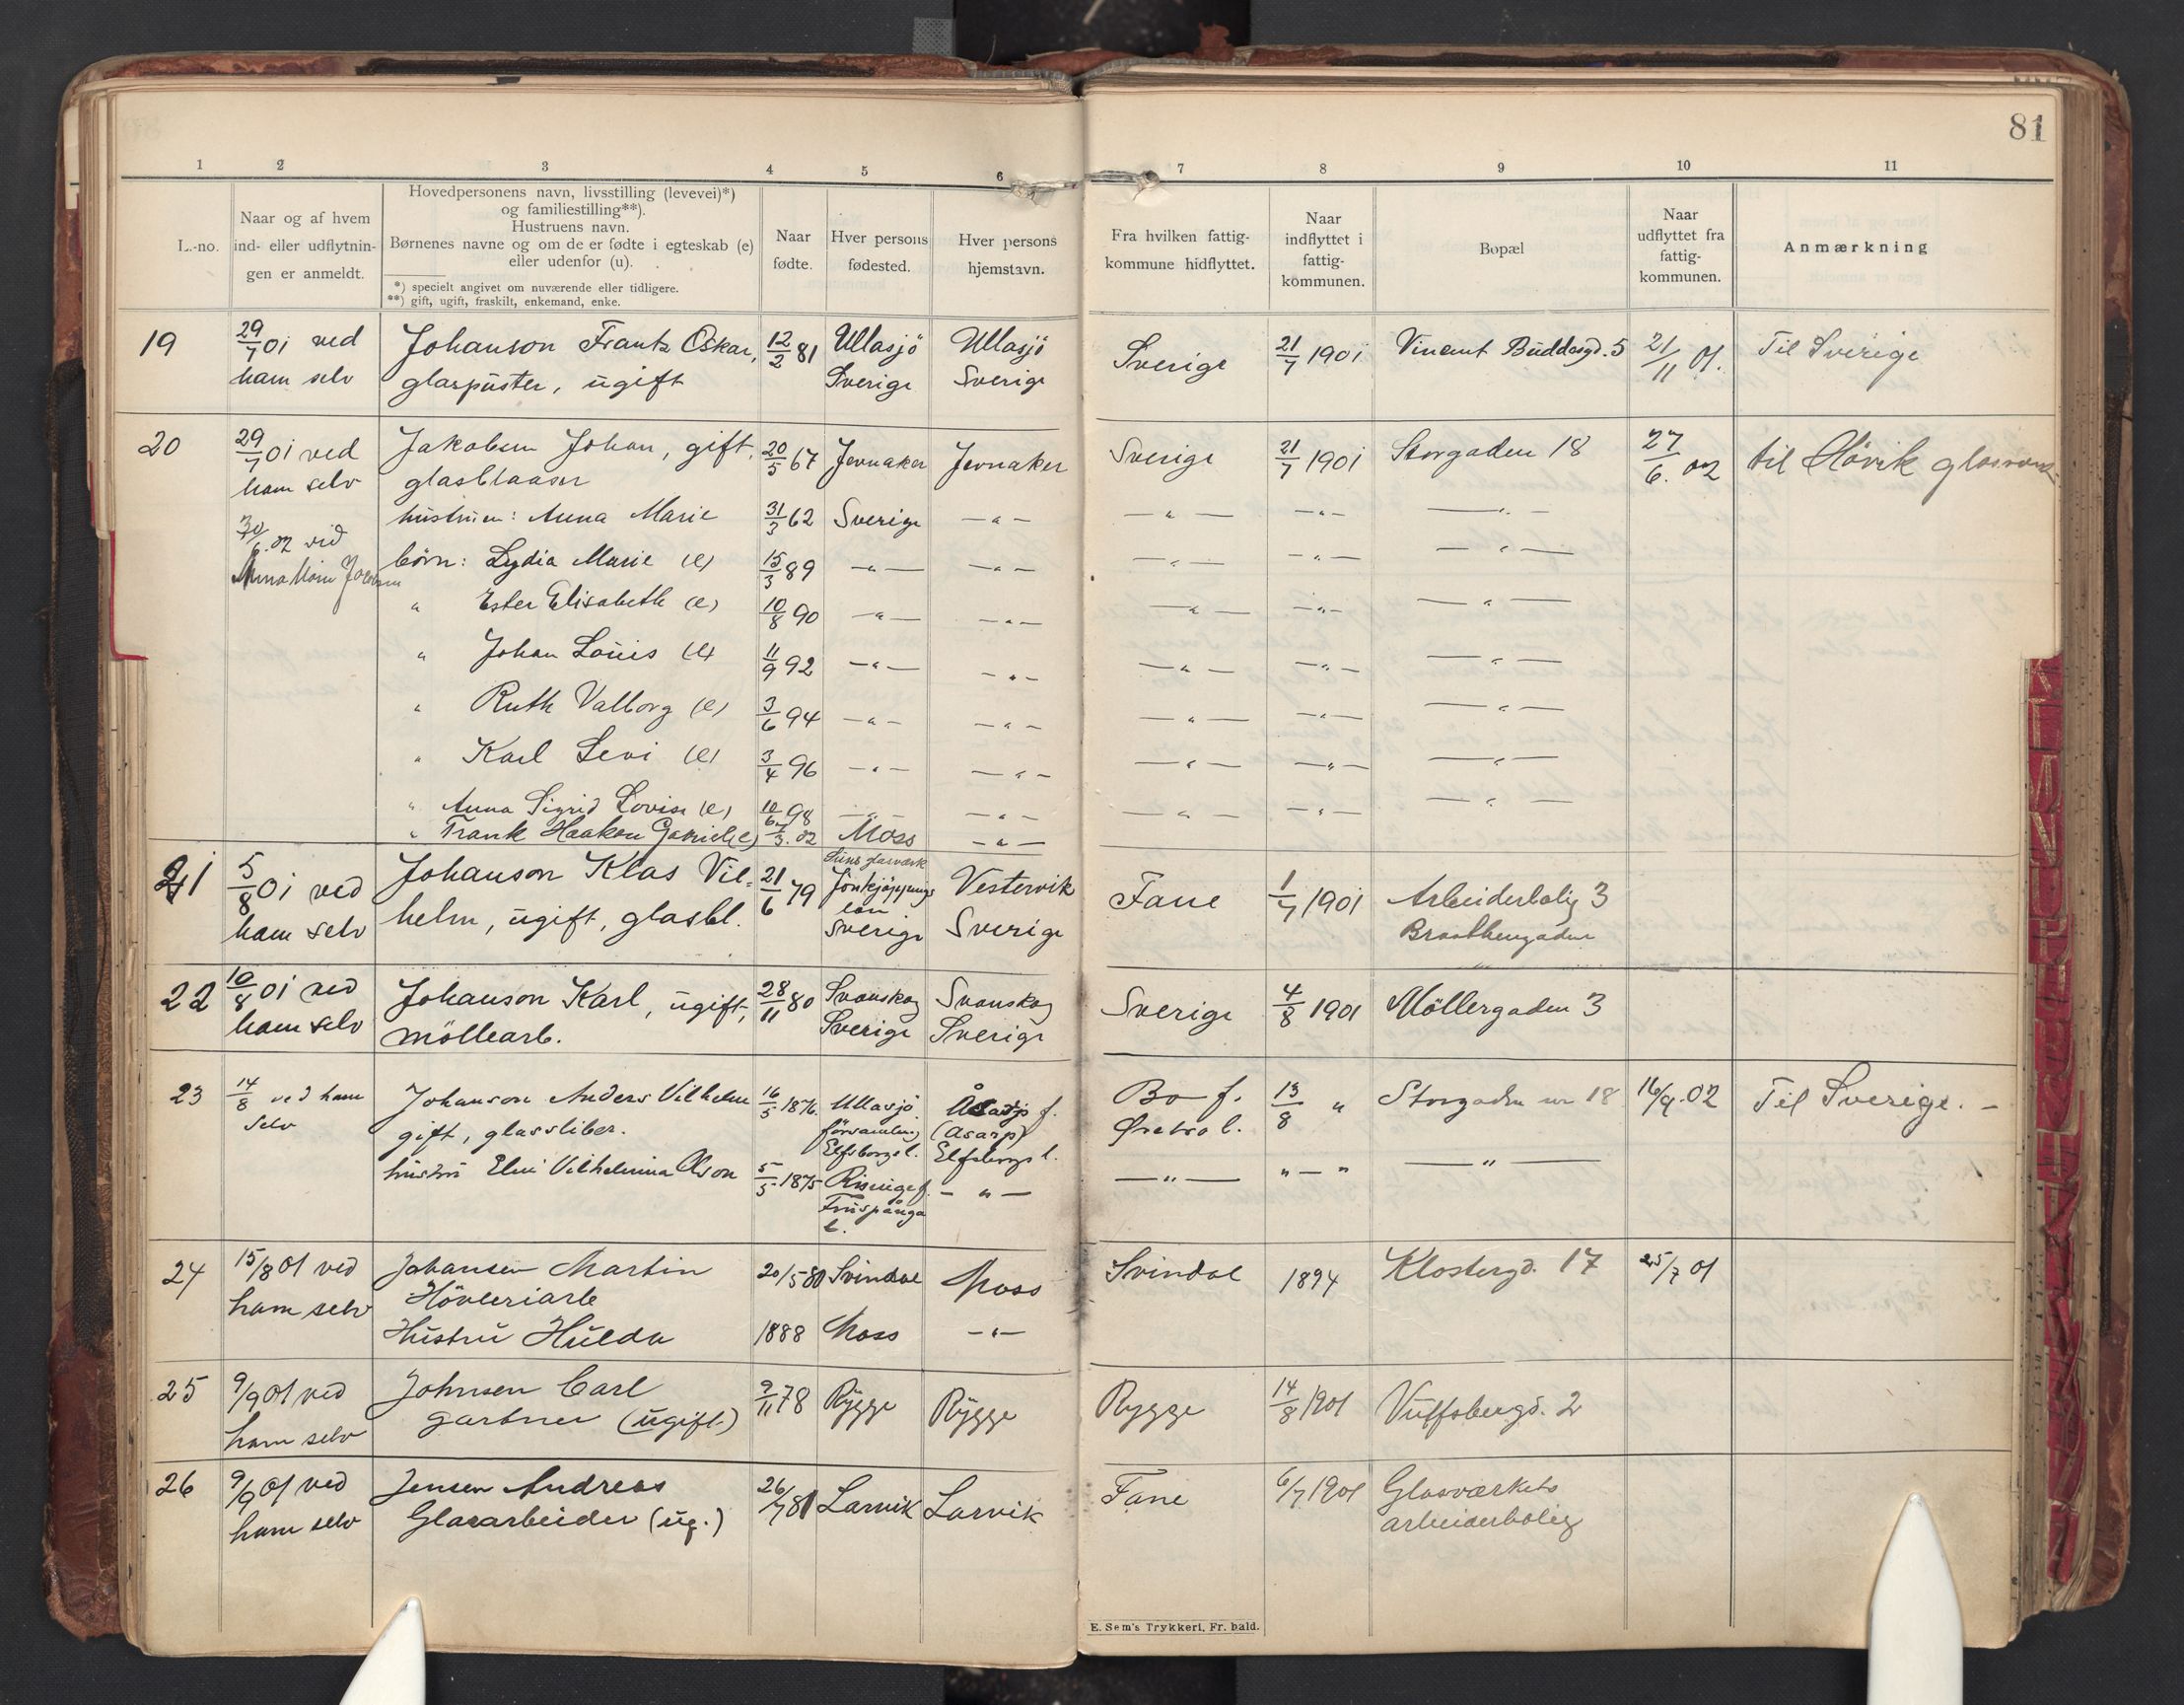 81
1 2 3 4 5 6 7 8 9 10 11
L.-no.
Naar og af hvem
ind- eller udflytnin-
gen er anmeldt.
Hovedpersonens navn, livsstilling (levevei)*)
og familiestilling**).
Hustruens navn.
Børnenes navne og om de er fødte i egteskab (e)
eller udenfor (u).
*) specielt angivet om nuværende eller tidligere.
**) gift, ugift, fraskilt, enkemand, enke.
Naar
fødte.
Hver persons
fødested.
Hver persons
hjemstavn.
Fra hvilken fattig-
kommune hidflyttet.
Naar
indflyttet i
fattig-
kommunen.
Bopæl
Naar
udflyttet fra
fattig-
kommunen.
Anmærkning
19 29/7 01 ved Johanson Frantz Oskar, 12/2 81 Ullasjö Ullasjö Sverige 21/7 1901 Vincent Buddesgd. 5 21/11 01. Til Sverige
ham selv glaspüster, ugift Sverige Sverige
20 29/7 01 ved Jakobsen Johan, gift, 20/5 67 Jevnaker Jevnaker Sverige 21/7 1901 Storgaden 18 27/6. 02 til Høvik glasværk
ham selv glasblaaser
hustruen: Anna Marie 31/3 62 Sverige — " — — " — — " — — " —
30/6. 02 ved
Anna Marie Jacobsen
børn: Lydia Marie (e) 15/3 89 — " — — " — — " — — " — — " —
" Ester Elisabeth (e) 10/8 90 — " — — " — — " — — " — — " —
" Johan Louis (e) 11/9 92 — " — — " — — " — — " — — " —
" Ruth Valborg (e) 3/6 94 — " — — " — — " — — " — — " —
" Karl Levi (e) 3/4 96 — " — — " — — " — — " — — " —
" Anna Sigrid Lovise (e) 10/6 98 — " — — " — — " — — " — — " —
" Frank Haakon Gabriel (e) /3. 02 Moss — " —
21 5/8 01 ved Johanson Klas Vil- 21/6 79 Jönkjöppings Vestervik Fane 1/7 1901 Arbeiderbolig 3
ham selv helm, ugift, glasbl. län Sverige Sverige Braathengaden
22 10/8 01 ved Johanson Karl, ugift, 28/11 80 Svanskog Svanskog Sverige 4/8 1901 Möllergaden 3
ham selv möllearb. Sverige Sverige
23 14/8 ved ham Johanson Anders Vilhelm 16/5 1876. Ullasjö Åsarp f. Bo f. 13/8 " Storgaden nr 18 16/9. 02 Til Sverige. –
selv gift, glassliber. församling (Åsarp) Ørebro l.
Elfsborgs l. Elfsborgs l.
hustru Elin Vilhelmina Olson 5/5 1875 Risinge f. – " – — " — " — " — " —
l.
24 15/8 01 ved Johansen Martin 20/5 80 Svindal Moss Svindal 1894 Klostergd. 17 25/7 01
ham selv Høvleriarb
Hustru Hulda 1888 Moss – " –
25 9/9 01 ved Johnsen Carl 9/11 78 Rygge Rygge Rygge 14/8 1901 Vulfsbergd. 2
ham selv gartner (ugift)
26 9/9 01 ved Jensen Andreas 26/7 81 Larvik Larvik Fane 6/7 1901 Glasværkets
ham selv Glasarbeider (ug.) arbeiderbolig
E. Sem's Trykkeri, Fr.hald.